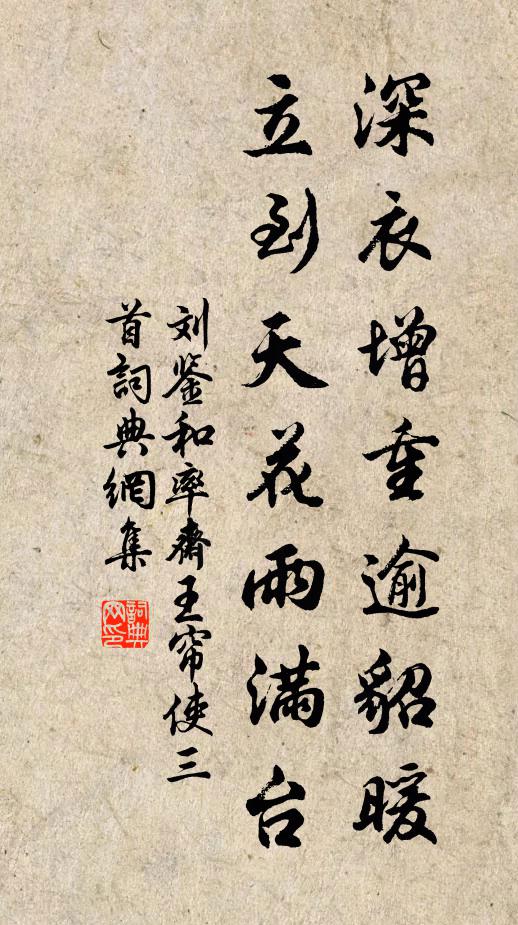 深衣增重逾貂暖
立到天花雨满台
刘鉴和率斋王帘使三
首詞典網集
詞典网印